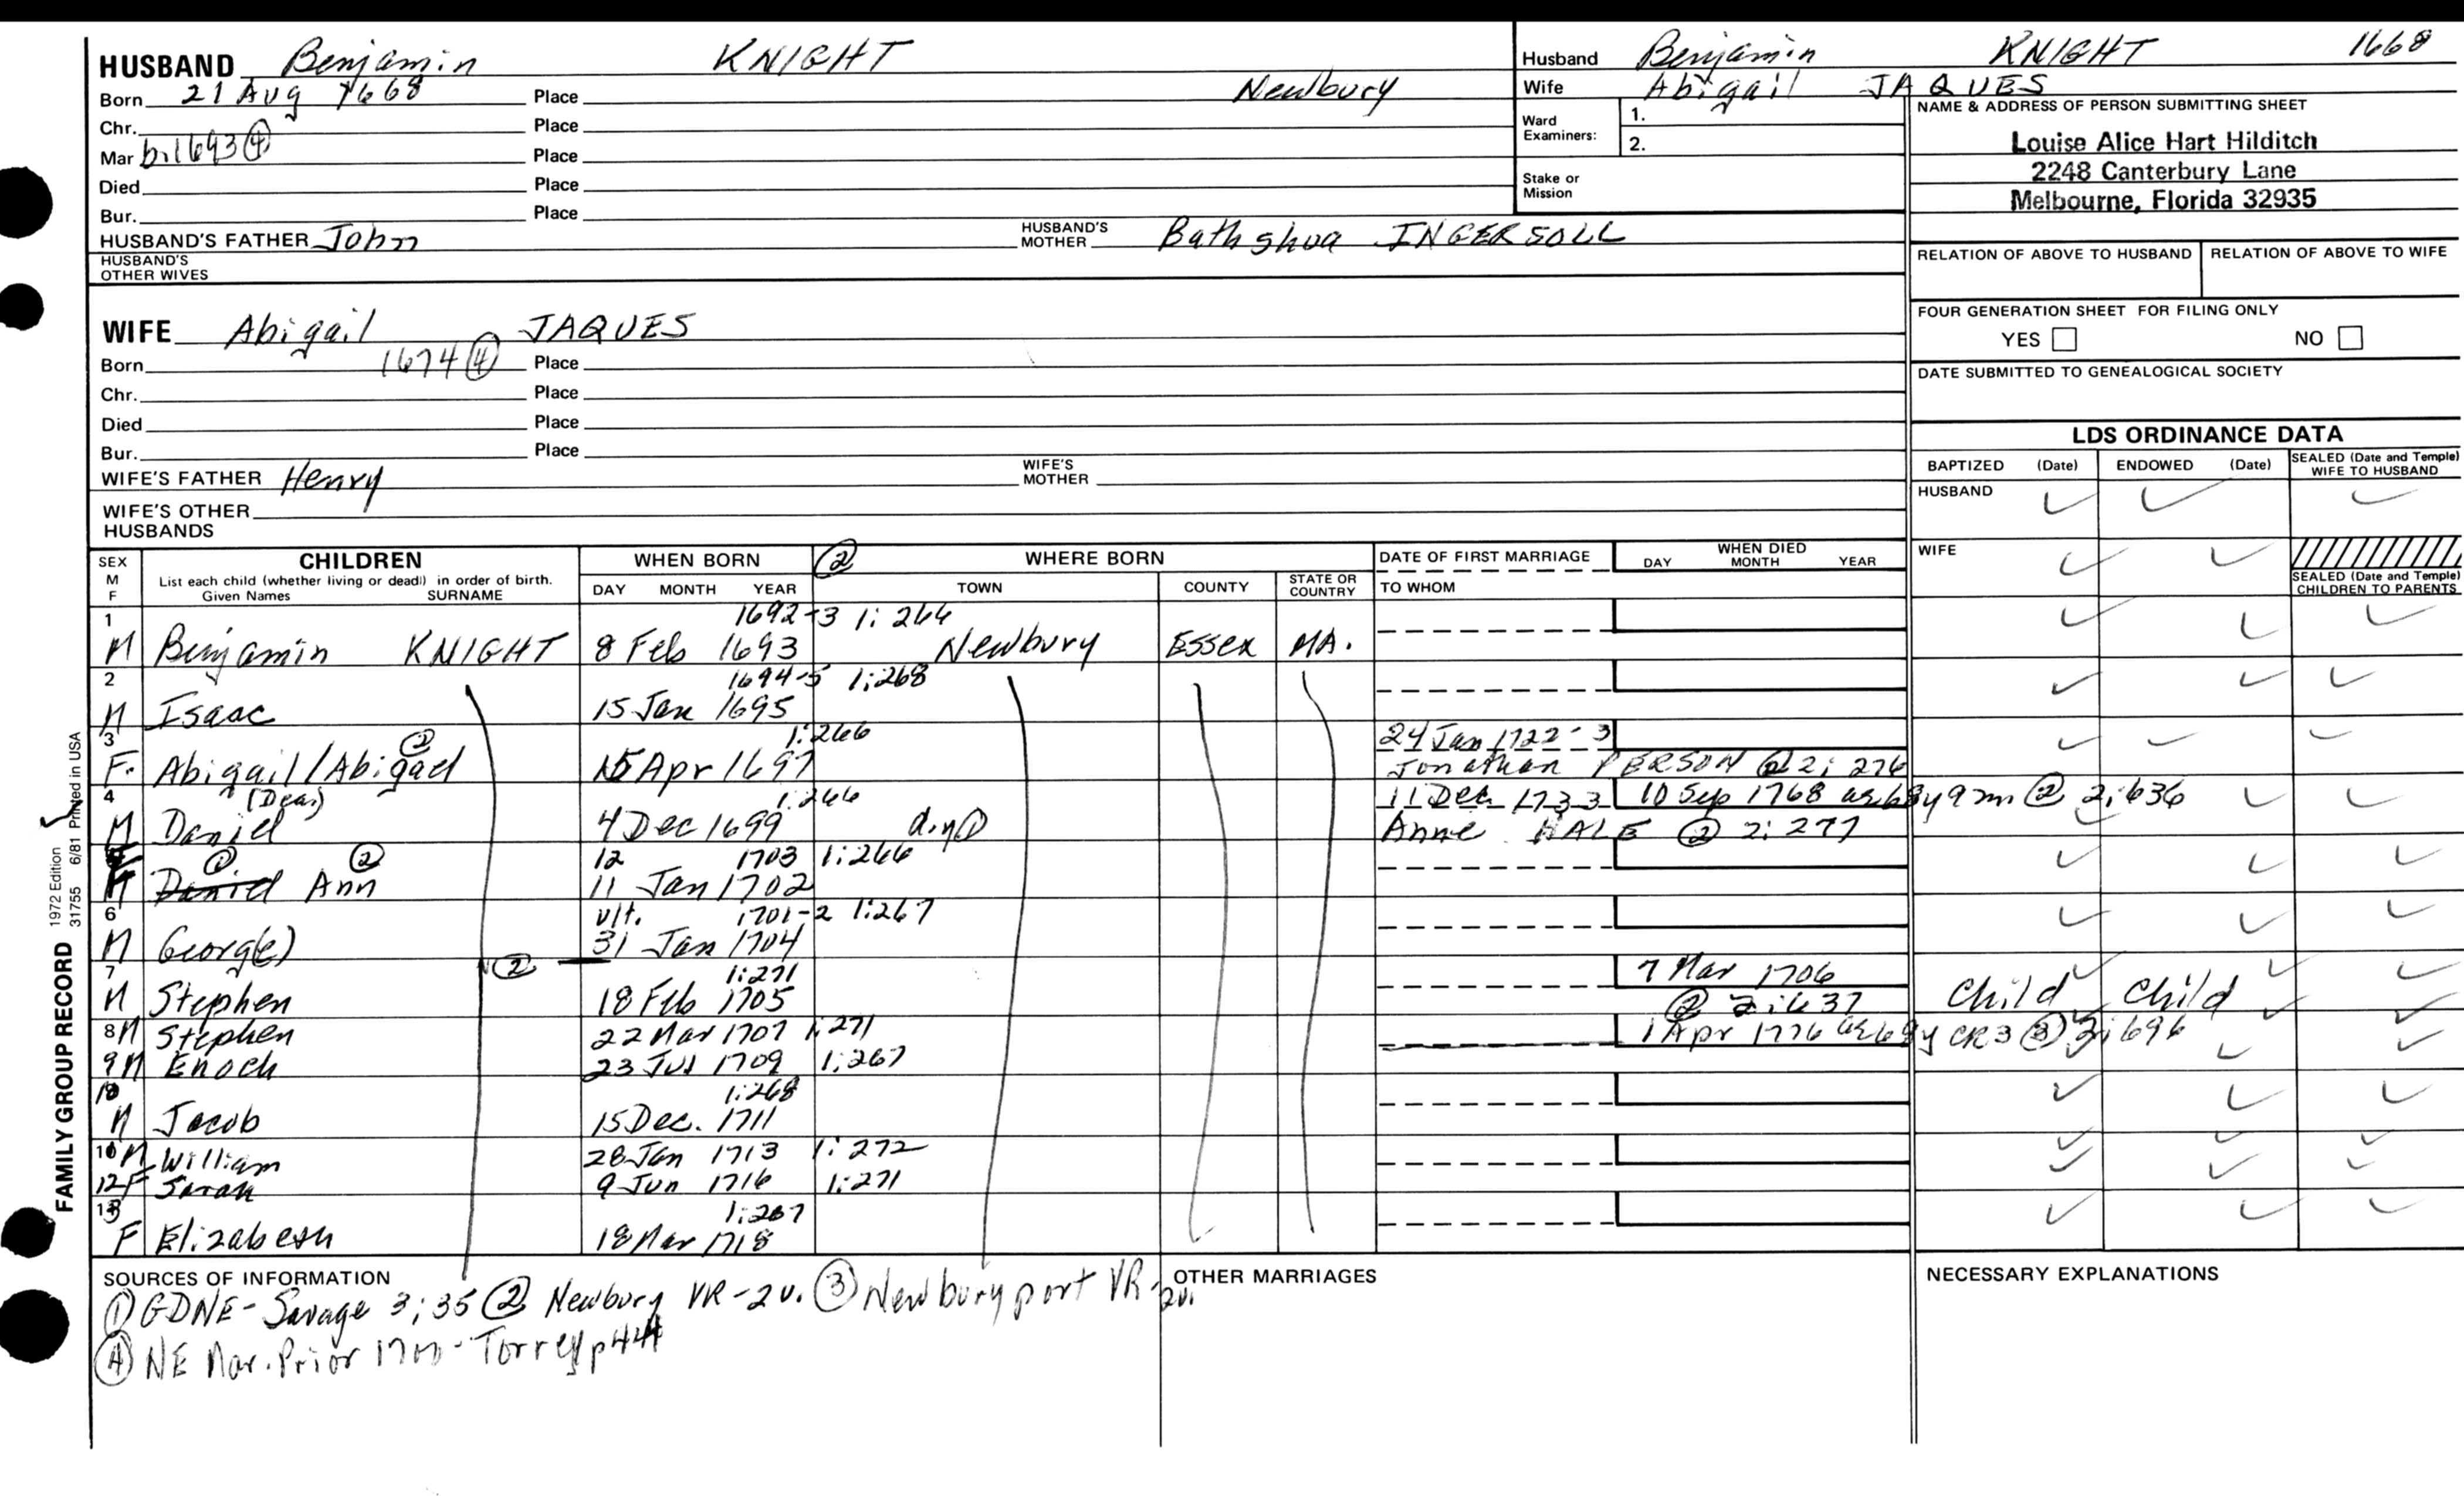 HUSBAND Benjamin KNIGHT
Born 21 Aug 1668 Place Newbury
Chr. Place
Mar b. 1693 ④ Place
Died Place
Bur. Place
HUSBAND'S FATHER John HUSBAND'S MOTHER Bathshua INGERSOLL
HUSBAND'S OTHER WIVES
Husband Benjamin KNIGHT 1668
Wife Abigail JAQUES
Ward Examiners: 1.
2.
Stake or Mission
NAME & ADDRESS OF PERSON SUBMITTING SHEET
Louise Alice Hart Hilditch
2248 Canterbury Lane
Melbourne, Florida 32935
RELATION OF ABOVE TO HUSBAND RELATION OF ABOVE TO WIFE
FOUR GENERATION SHEET FOR FILING ONLY
YES NO
DATE SUBMITTED TO GENEALOGICAL SOCIETY
WIFE Abigail JAQUES
Born 1674 ④ Place
Chr. Place
Died Place
Bur. Place
WIFE'S FATHER Henry WIFE'S MOTHER
WIFE'S OTHER HUSBANDS
LDS ORDINANCE DATA
BAPTIZED (Date) ENDOWED (Date) SEALED (Date and Temple) WIFE TO HUSBAND
HUSBAND
WIFE
SEALED (Date and Temple) CHILDREN TO PARENTS
SEX M F CHILDREN WHEN BORN ② WHERE BORN DATE OF FIRST MARRIAGE WHEN DIED
List each child (whether living or dead) in order of birth.
Given Names SURNAME DAY MONTH YEAR TOWN COUNTY STATE OR COUNTRY TO WHOM DAY MONTH YEAR
1 1692-3 1:266
M Benjamin KNIGHT 8 Feb 1693 Newbury Essex MA.
2 1694-5 1:268
M Isaac 15 Jan 1695
3 ② 1:266 24 Jan 1722-3
F. Abigail/Abigael 15 Apr 1697 Jonathan PERSON ② 2:276
4 (Dea.) 1:266 11 Dec 1733 10 Sep 1768 as 68y 9m ② 2:636
M Daniel 4 Dec 1699 d.y.① Anne HALE ② 2:277
① ② 12 1703 1:266
Daniel Ann 11 Jan 1702
6 ult. 1701-2 1:267
M Georg(e) 31 Jan 1704
7 ② 1:271 7 Mar 1706
M Stephen 18 Feb 1705 ② 2:637 Child Child
8 M Stephen 22 Mar 1707 1:271 1 Apr 1776 as 69y CR3 ③ 2:696
9 M Enoch 23 Jul 1709 1:267
10 1:268
M Jacob 15 Dec. 1711
M William 28 Jan 1713 1:272
12 F Sarah 9 Jun 1716 1:271
13 1:267
F Elizabeth 18 Mar 1718
SOURCES OF INFORMATION
① GDNE-Savage 3:35 ② Newbury VR-2v. ③ Newburyport VR-2v.
④ NE Mar. Prior 1700-Torrey p444
OTHER MARRIAGES
NECESSARY EXPLANATIONS
FAMILY GROUP RECORD 1972 Edition
31755 6/81 Printed in USA